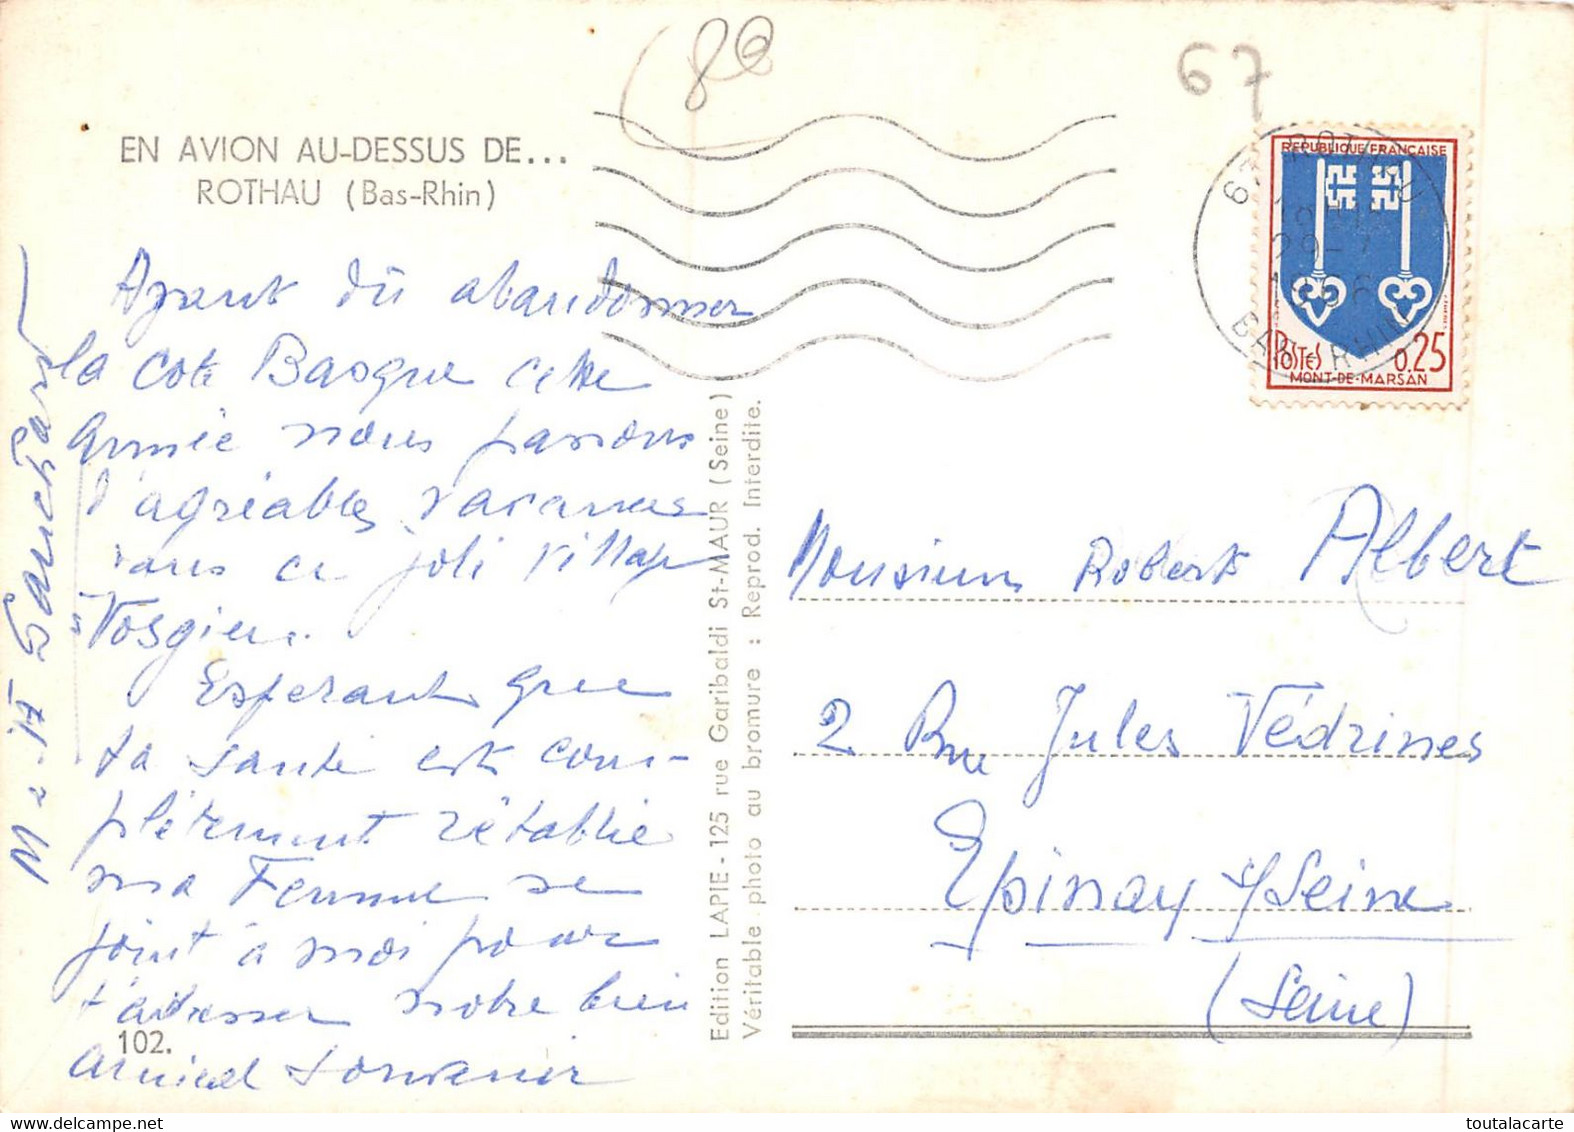 (8€
67
EN AVION AU-DESSUS DE...
ROTHAU (Bas-Rhin)
REPUBLIQUE FRANÇAISE
POSTES 0.25
MONT-DE-MARSAN
67 ROTHAU
29-7
1966
BAS RHIN
Ayant dû abandonner
la cote Basque cette
année nous passons
d'agréables vacances
dans ce joli village
Vosgien.
Espérant que
ta santé est com-
plètement rétablie
ma Femme se
joint à moi pour
t'adresser notre bien
amical souvenir
102.
Edition LAPIE - 125 rue Garibaldi St-MAUR (Seine)
Véritable photo au bromure : Reprod. Interdite.
Monsieur Robert Albert
2 Rue Jules Védrines
Epinay s/Seine
(Seine)
toutalacarte